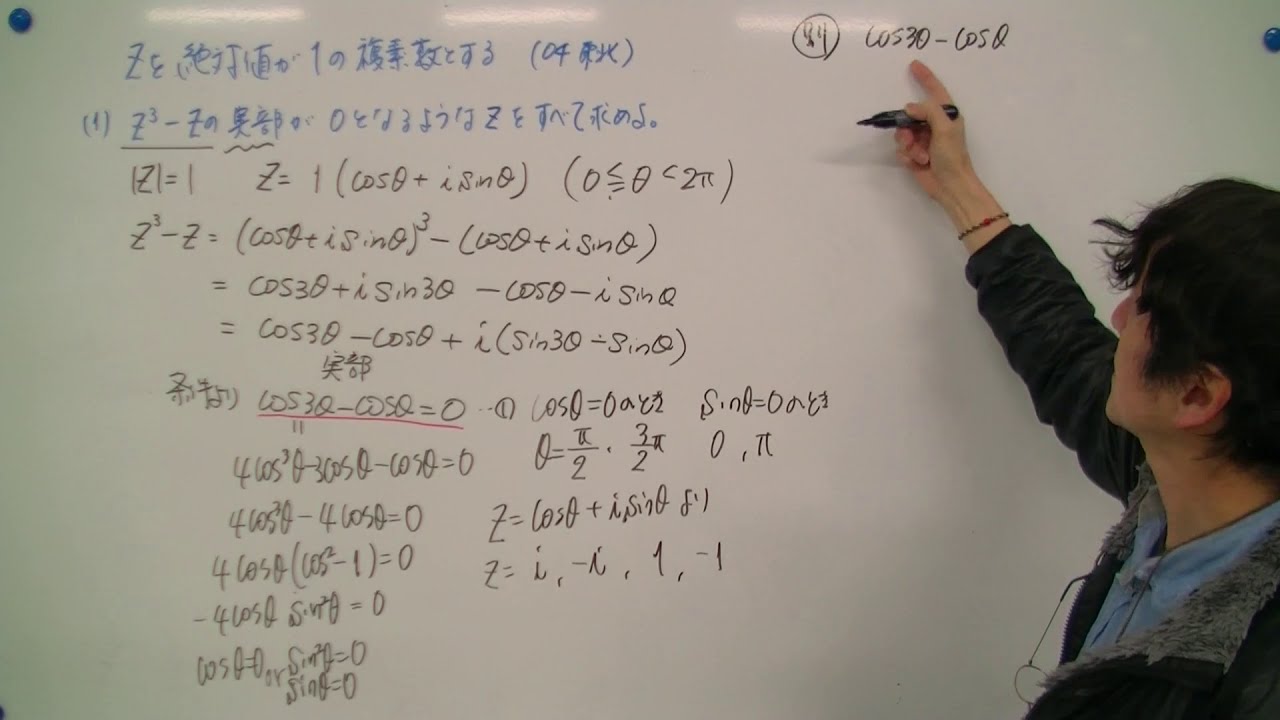 Zを絶対値が1の複素数とする (04 東北)
(1) Z³-Zの実部が0となるようなZをすべて求めよ。
|Z|=1 Z= 1(cosθ+isinθ) (0≦θ<2π)
Z³-Z = (cosθ+isinθ)³-(cosθ+isinθ)
= cos3θ+isin3θ -cosθ-isinθ
= cos3θ-cosθ+i(sin3θ-sinθ)
実部
条件より cos3θ-cosθ=0 …①
=
4cos³θ-3cosθ-cosθ=0
4cos³θ-4cosθ=0
4cosθ(cos²-1)=0
-4cosθ sin²θ=0
cosθ=0 or sin²θ=0
sinθ=0
cosθ=0のとき sinθ=0のとき
θ=π/2・3/2π 0,π
Z=cosθ+isinθより
Z= i, -i, 1, -1
別 cos3θ-cosθ